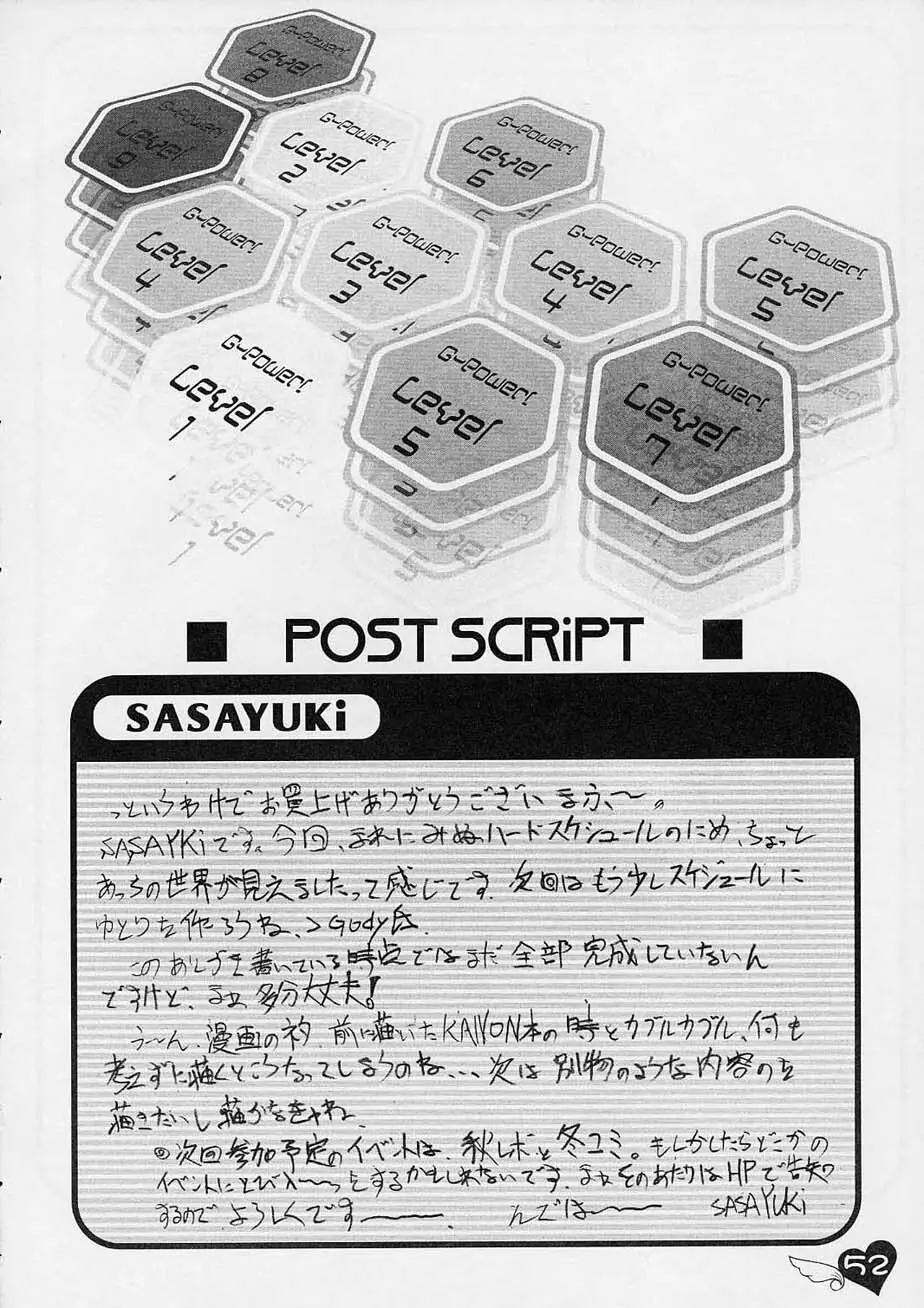 G-Power!
Level
8
G-Power!
Level
9
G-Power!
Level
2
G-Power!
Level
6
G-Power!
Level
4
G-Power!
Level
3
G-Power!
Level
4
G-Power!
Level
5
G-Power!
Level
1
G-Power!
Level
5
G-Power!
Level
7
Level
1
■ POST SCRiPT ■
SASAYUKi
っというわけでお買上げありがとうございまふ、〜。
SASAYKiです。今回、まれにみぬハードスケジュールのため、ちょっと
あっちの世界が見えましたって感じです。次回はもう少しスケジュールに
ゆとりを作ろうね、>Gody氏.
このあとがきを書いている時点ではまだ全部完成していないん
ですけど、まぁ多分大丈夫!
う〜ん、漫画のネタ、前に描いたKANON本の時とカブルカブル、何も
考えずに描くとこうなってしまうのね、、、次は別物のような内容のを
描きたいし描かなきゃね。
◎次回参加予定のイベントは、秋レボと冬コミ。もしかしたらどこかの
イベントにとび入〜っとするかもしれないです。まぁそのあたりはHPで告知
するので、よろしくです〜. んでは〜 SASAYUKi
52